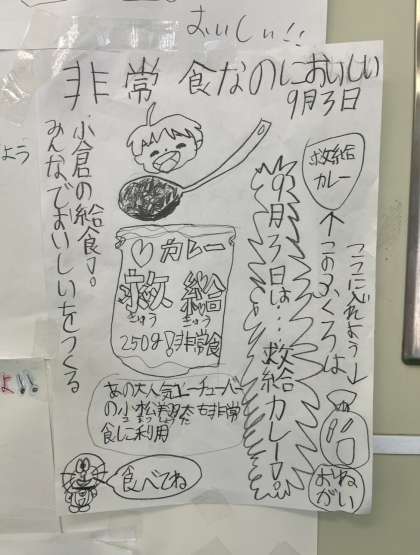 おいしい!!
非常食なのにおいしい
9月3日
小倉の給食♪。
みんなでおいしいをつくる
救給
カレー
ここに入れよう→
このふくろは→
9月3日は…救給カレー!。
♡カレー
救給
きゅう きゅう
250g!非常食
あの大人気ユーチューバー
の小松
も非常
食に利用
食べてね
おね
がい
よう
よ!!